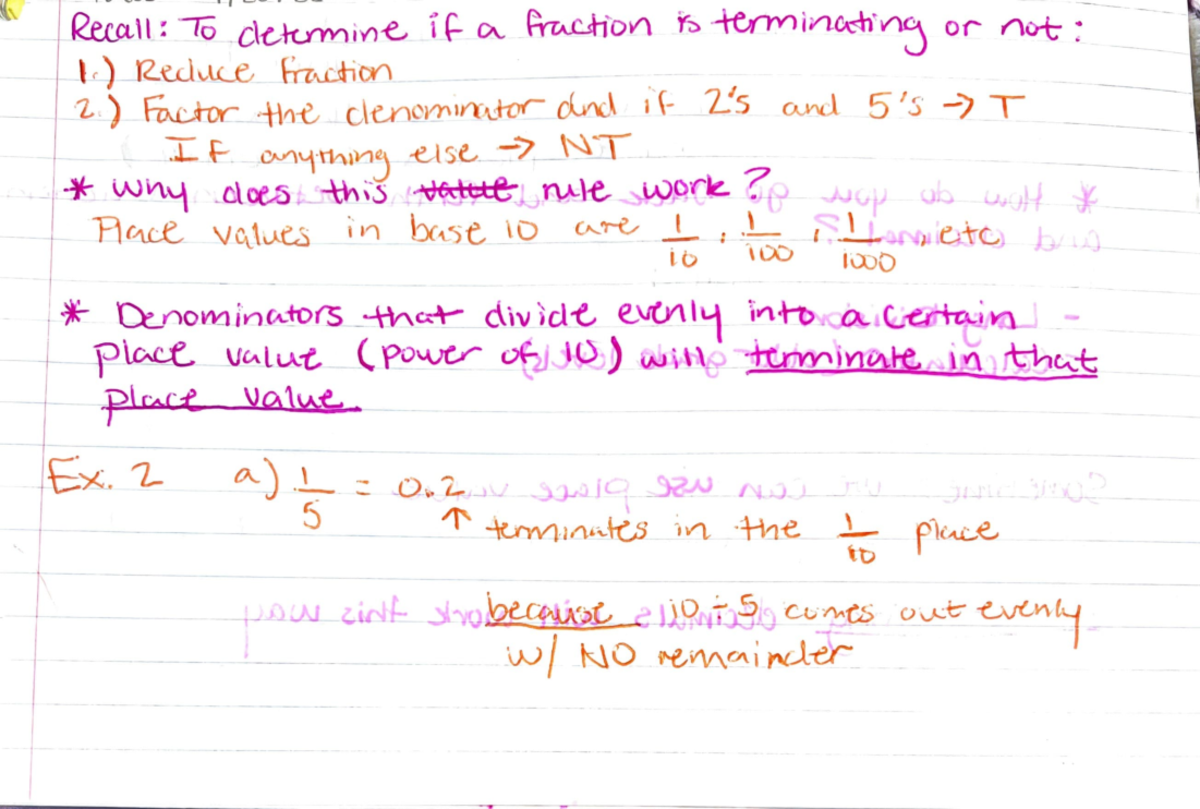 Recall: To determine if a fraction is terminating or not:
1.) Reduce fraction
2.) Factor the denominator and if 2's and 5's → T
If anything else → NT
* Why does this value rule work?
Place values in base 10 are 1/10, 1/100, 1/1000, etc
* Denominators that divide evenly into a certain
place value (power of 10) will terminate in that
place value.
Ex. 2 a) 1/5 = 0.2
↑ terminates in the 1/10 place
because 10 ÷ 5 comes out evenly
w/ NO remainder